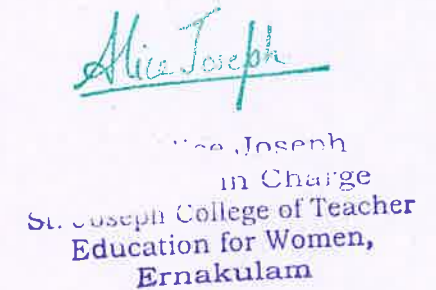 Alice Joseph
Joseph
in Charge
St. Joseph College of Teacher
Education for Women,
Ernakulam